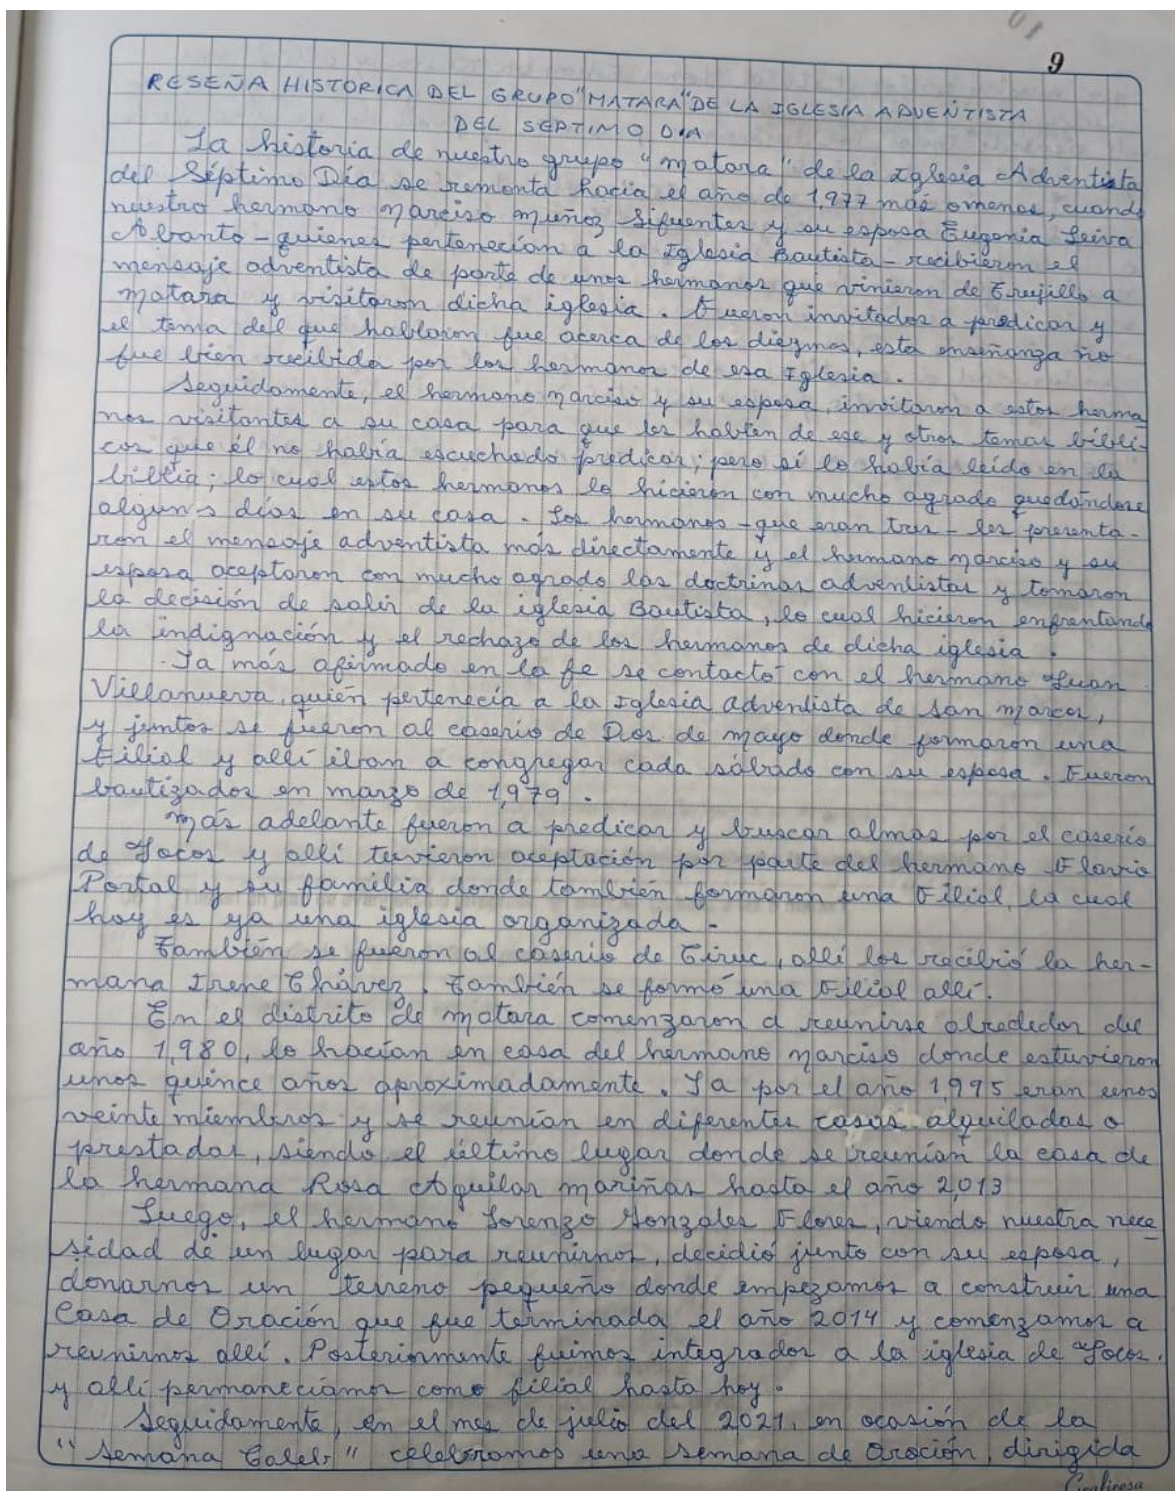 01
9
RESEÑA HISTORICA DEL GRUPO "MATARA" DE LA IGLESIA ADVENTISTA
DEL SEPTIMO DIA
La historia de nuestro grupo "Matara" de la Iglesia Adventista
del Séptimo Día se remonta hacia el año de 1,977 más omenos, cuando
nuestro hermano Narciso Muñoz Sifuentes y su esposa Eugenia Leiva
Abanto - quienes pertenecían a la Iglesia Bautista - recibieron el
mensaje adventista de parte de unos hermanos que vinieron de Trujillo a
Matara y visitaron dicha iglesia. Fueron invitados a predicar y
el tema del que hablaron fue acerca de los diezmos, esta enseñanza no
fue bien recibida por los hermanos de esa Iglesia.
Seguidamente, el hermano Narciso y su esposa, invitaron a estos herma
nos visitantes a su casa para que les hablen de ese y otros temas bíbli-
cos que él no había escuchado predicar; pero sí lo había leído en la
biblia; lo cual estos hermanos lo hicieron con mucho agrado quedándose
algunos días en su casa. Los hermanos - que eran tres - les presenta-
ron el mensaje adventista más directamente y el hermano Narciso y su
esposa aceptaron con mucho agrado las doctrinas adventistas y tomaron
la decisión de salir de la iglesia Bautista, lo cual hicieron enfrentando
la indignación y el rechazo de los hermanos de dicha iglesia.
Ya más afirmado en la fe se contactó con el hermano Juan
Villanueva, quién pertenecía a la Iglesia adventista de San Marcos,
y juntos se fueron al caserío de Dos de Mayo donde formaron una
Filial y allí iban a congregar cada sábado con su esposa. Fueron
bautizados en marzo de 1,979.
Más adelante fueron a predicar y buscar almas por el caserío
de Jocos y allí tuvieron aceptación por parte del hermano Flavio
Portal y su familia donde también formaron una Filial, la cual
hoy es ya una iglesia organizada.
También se fueron al caserío de Tiruc, allí los recibió la her-
mana Irene Chávez. También se formó una Filial allí.
En el distrito de Matara comenzaron a reunirse alrededor del
año 1,980, lo hacían en casa del hermano Narciso donde estuvieron
unos quince años aproximadamente. Ya por el año 1,995 eran unos
veinte miembros y se reunían en diferentes casas alquiladas o
prestadas, siendo el último lugar donde se reunían la casa de
la hermana Rosa Aguilar Mariñas hasta el año 2,013
Luego, el hermano Lorenzo Gonzales Flores, viendo nuestra nece
sidad de un lugar para reunirnos, decidió junto con su esposa,
donarnos un terreno pequeño donde empezamos a construir una
Casa de Oración que fue terminada el año 2014 y comenzamos a
reunirnos allí. Posteriormente fuimos integrados a la iglesia de Jocos.
y allí permaneciamos como filial hasta hoy.
Seguidamente, en el mes de julio del 2021, en ocasión de la
"Semana Caleb" celebramos una semana de Oración, dirigida
Graficesa